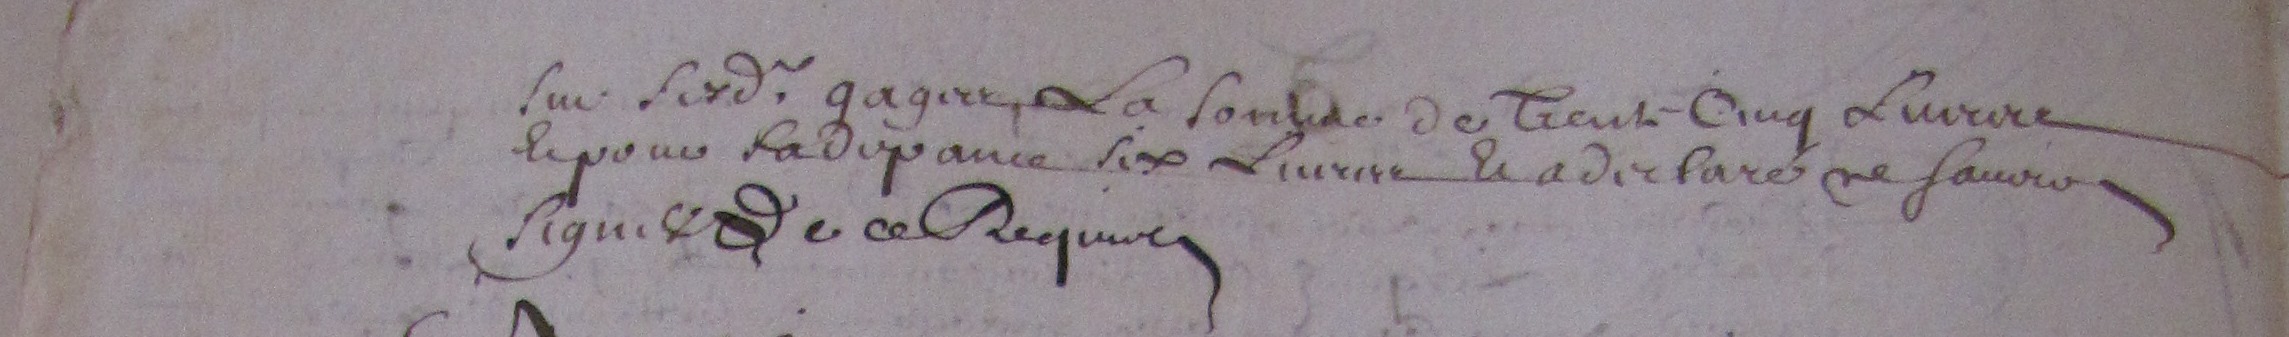 sur sesd.ts gages, La somme de Trente Cinq Livres
Et pour sa depance six Livres Et a declaré ne savoir
signer De ce Requis